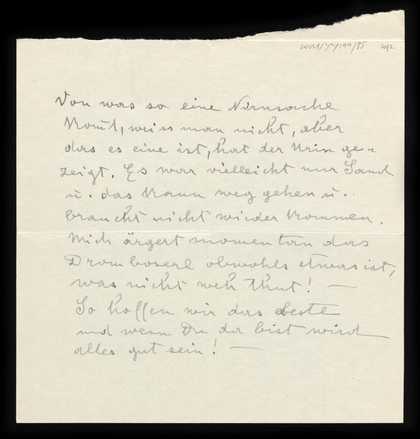 Von was so eine Nirnsache
Komt, weiss man nicht, aber
das es eine ist, hat der Urin ge=
zeigt. Es war vielleicht nur Sand
u. das Kann weg gehen u.
braucht nicht wieder Kommen.
Mich ärgert momentan das
obwohls etwas ist,
was nicht weh thut! —
So hoffen wir das beste
und wenn Du da bist wird
alles gut sein! —